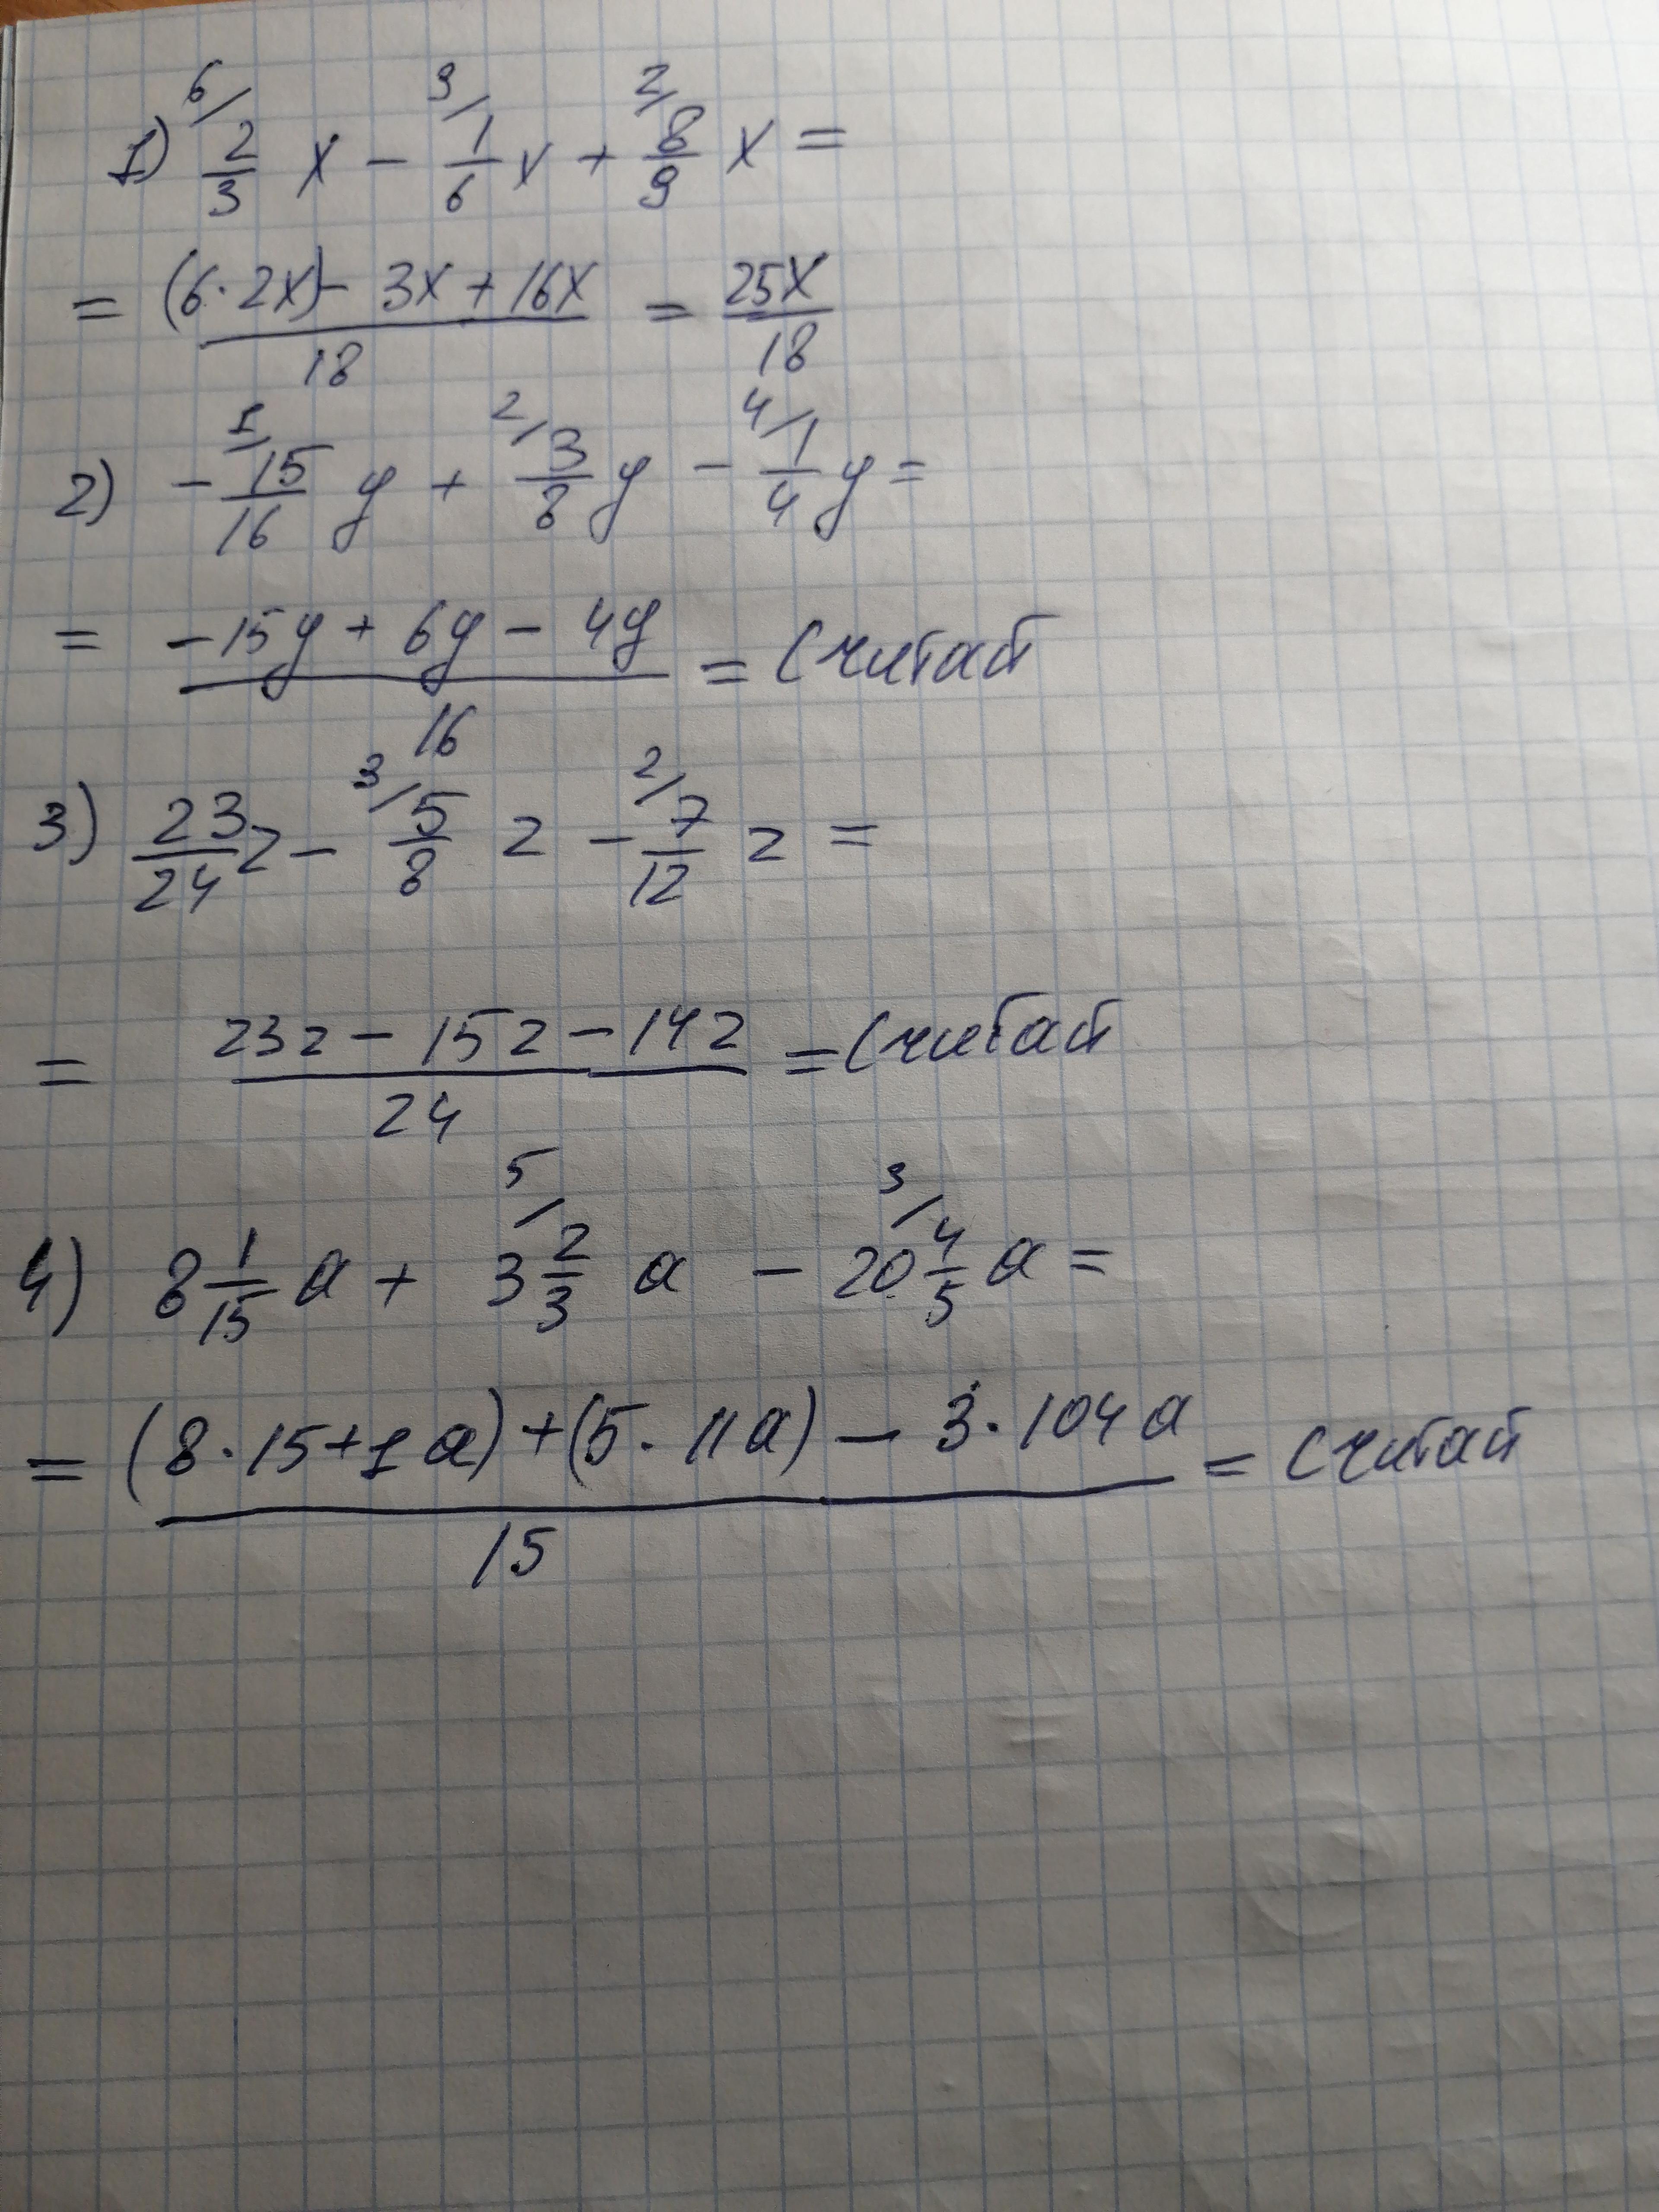 1) 6/ 2/3 x - 3/ 1/6 x + 2/ 8/9 x =
= (6·2x) - 3x + 16x / 18 = 25x / 18
2) - 1/ 15/16 y + 2/ 3/8 y - 4/ 1/4 y =
= -15y + 6y - 4y / 16 = Считай
3) 23/24 z - 3/ 5/8 z - 2/ 7/12 z =
= 23z - 15z - 14z / 24 = Считай
4) 8 1/15 a + 5/ 3 2/3 a - 3/ 20 4/5 a =
= (8·15+1a) + (5·11a) - 3·104a / 15 = Считай